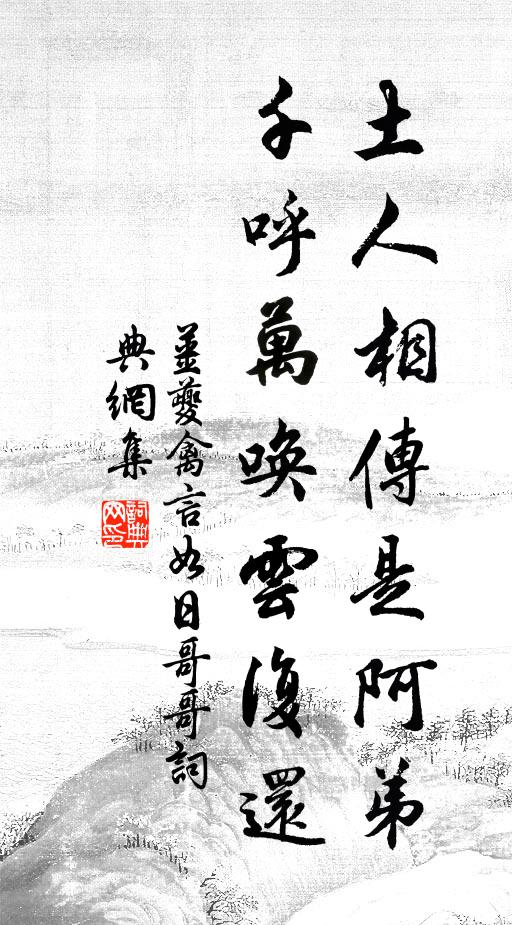 土人相傳是阿弟
千呼萬喚雲復還
姜夔禽言如日哥哥詞
典網集
詞典
网印